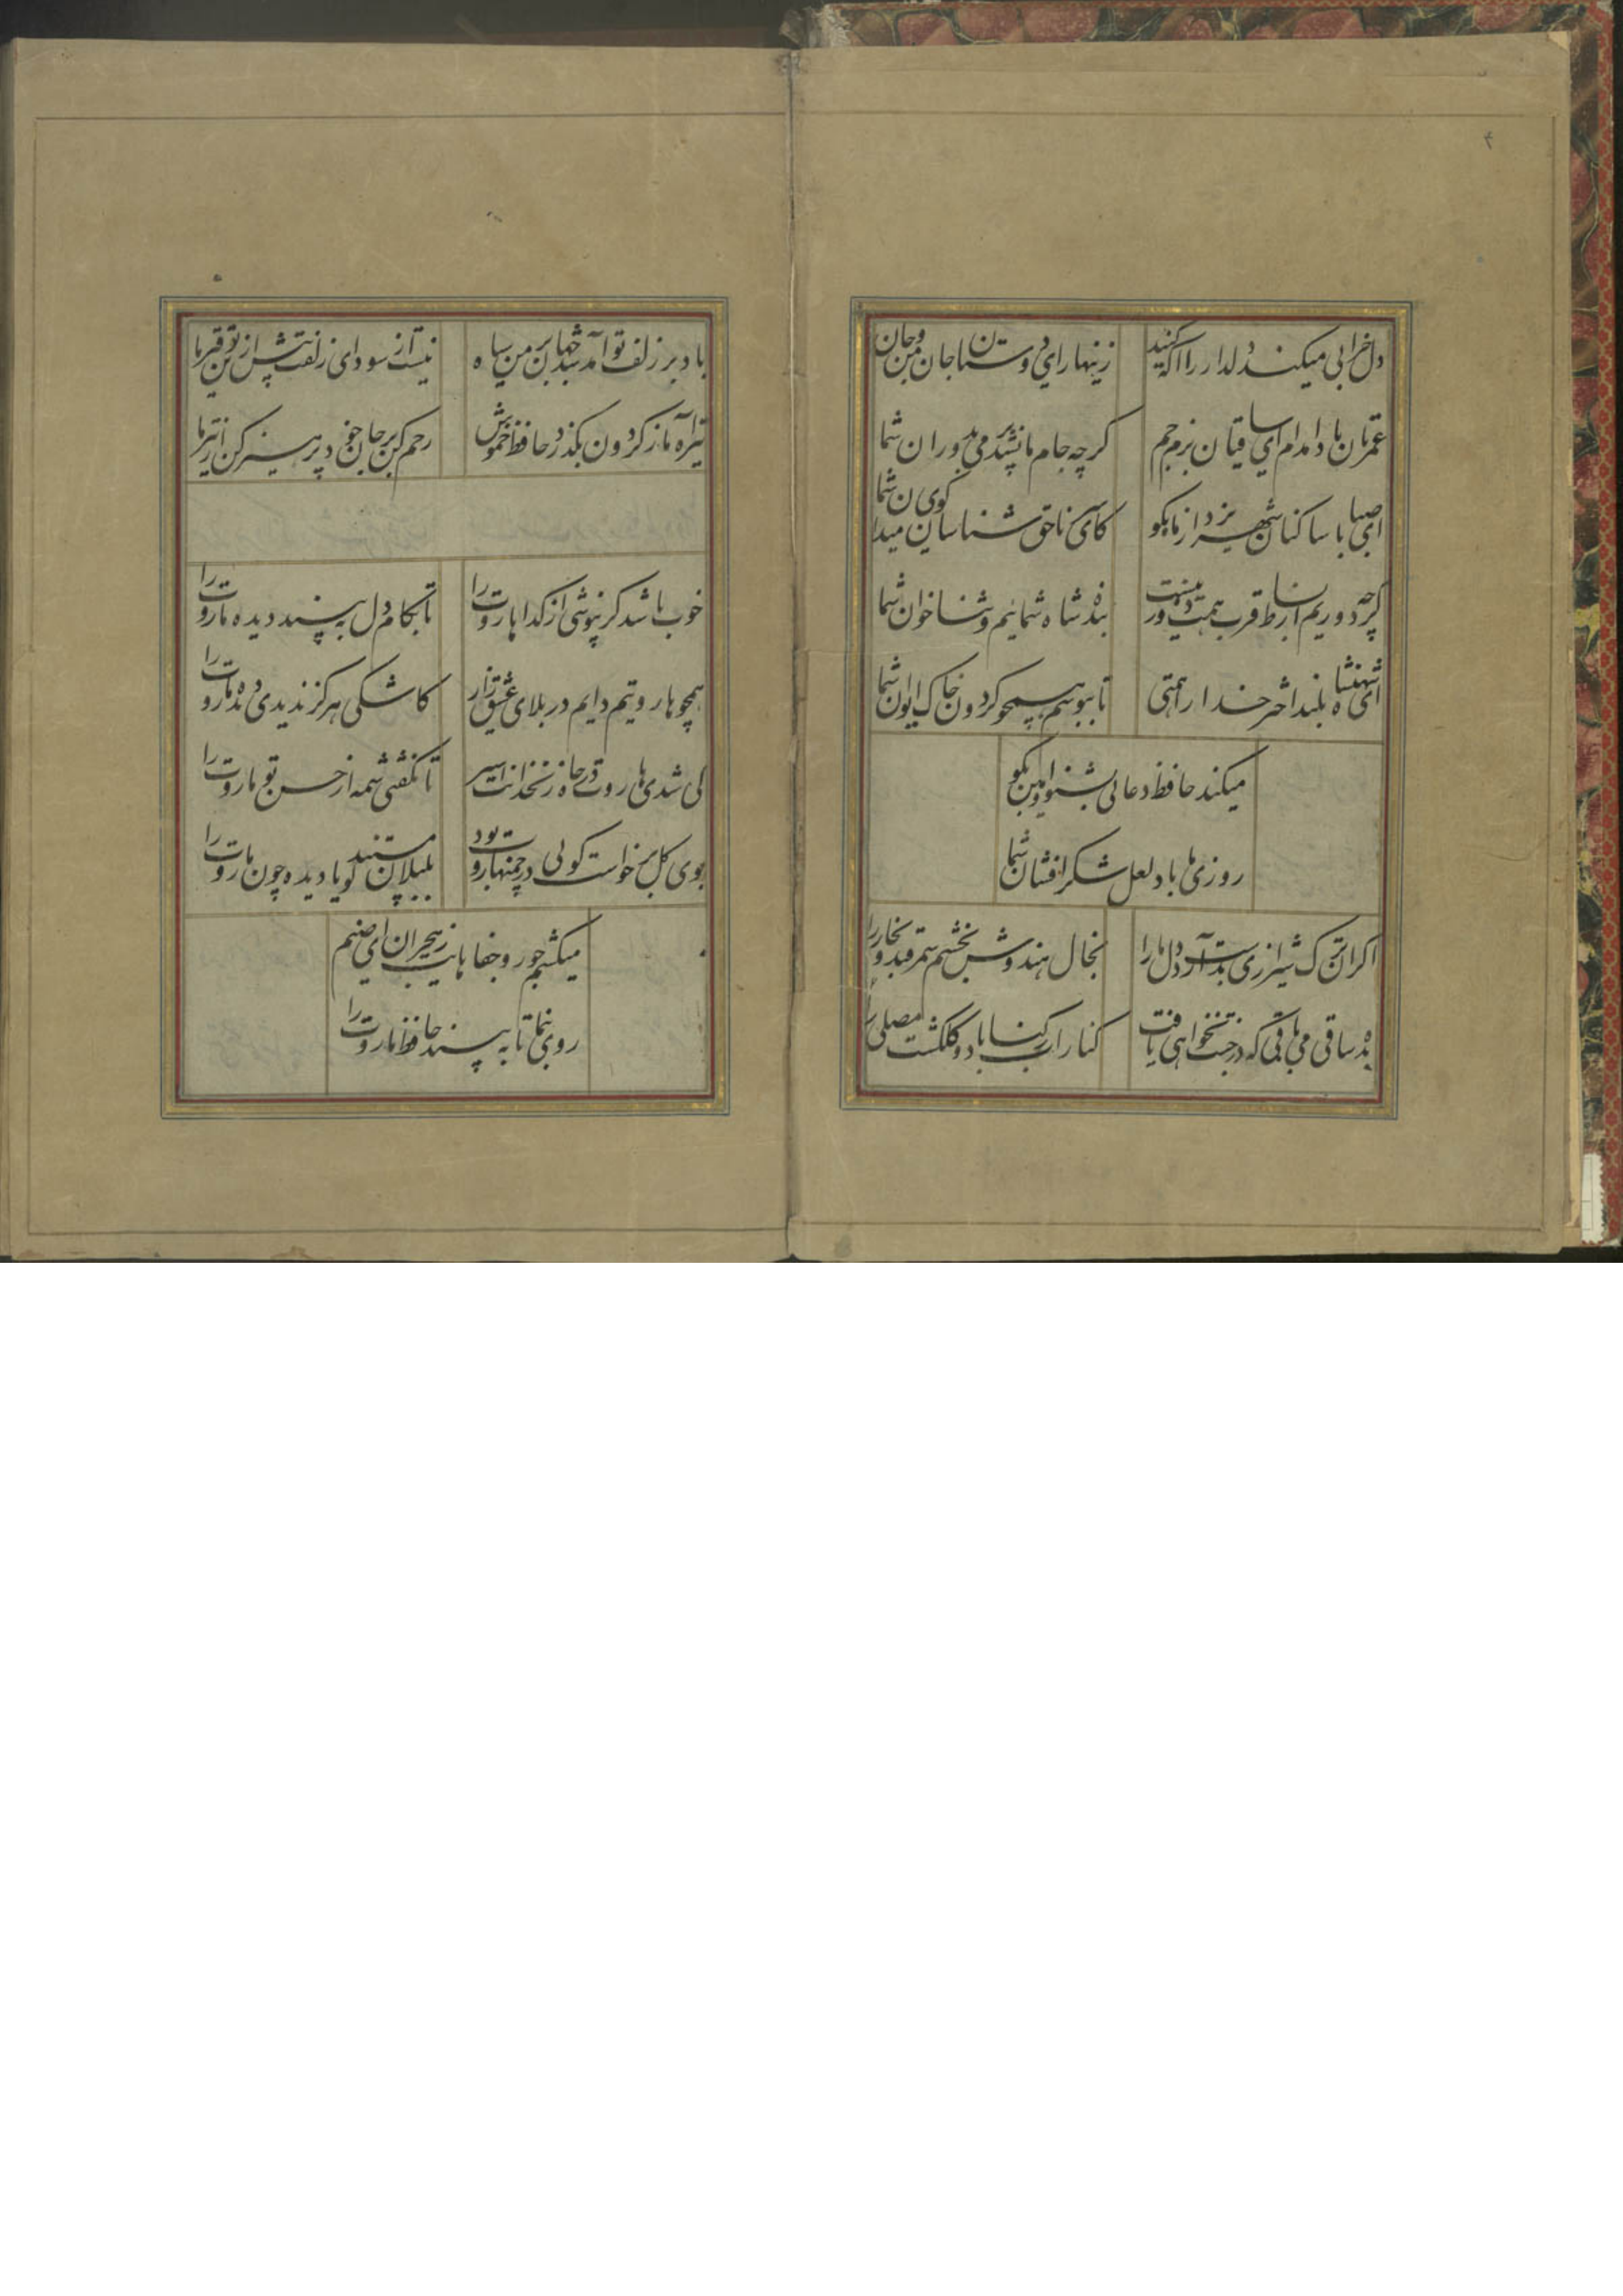 ۴
دل خرابی میکند دلدار را اکه کنید
زینهار ای دوستان جان من و جان شما
عمرتان باد مدام ای ساقیان بزم جم
کرچه جام ما نشد پر می بدوران شما
ای صبا با ساکنان شهر یزد از ما بکو
کای سر ناحق شناسان کوی میدان شما
کرچه دوریم از بساط قرب همت دور نیست
بنده شاه شمائیم و ثنا خوان شما
ای شهنشاه بلند اختر خدا را همتی
تا ببوسم همچو کردون خاک ایوان شما
میکند حافظ دعائی بشنو و آمین بکو
روزی ما باد لعل شکر افشان شما
اکر آن ترک شیرازی بدست آرد دل ما را
بخال هندوش بخشم سمرقند و بخارا را
بده ساقی می باقی که در جنت نخواهی یافت
کنار آب رکناباد و کلکشت مصلی را
باد بر زلف تو آمد شد جهان بر من سیاه
نیست از سودای زلفت بیش ازین توقیر ما
تیر آه ما ز کردون بکذرد حافظ خموش
رحم کن بر جان خود پرهیز کن از تیر ما
خوب باشد کر نپوشی از کدایا روت را
تا بکام دل به بیند دیده ما روت را
همچو هاروتیم دایم در بلای عشق زار
کاشکی هرکز ندیدی دیده ما روت را
کی شدی هاروت در چاه زنخدانت اسیر
تا نکفتی شمه از حسن تو ماروت را
بوی کل برخواست کوئی در چمنها روت بود
بلبلان مستند کویا دیده چون ما روت را
میکشم جور و جفاهایت ز هجران ای صنم
روی بنما تا به بیند حافظ ما روت را